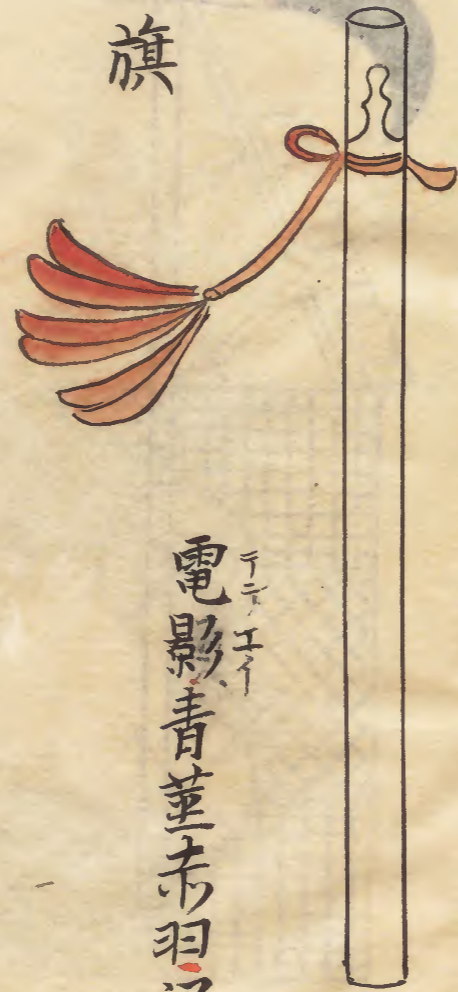 旗
電影青莖赤羽
デン エイ